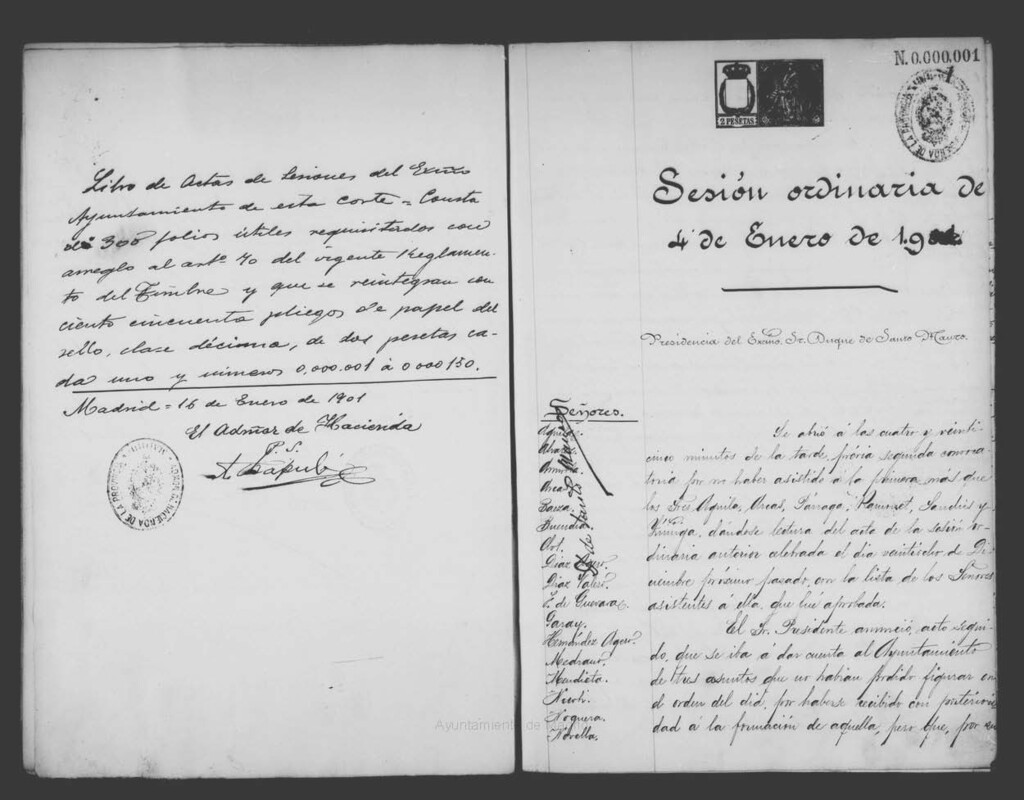 Libro de Actas de Sesiones del Exmo
Ayuntamiento de esta corte = Consta
de 300 folios útiles requisitados con
arreglo al artº 70 del vigente Reglamen-
to del Timbre y que se reintegran con
ciento cincuenta pliegos de papel del
sello, clase décima, de dos pesetas ca-
da uno y números 0,000.001 á 0000150.
Madrid = 16 de Enero de 1901
El Admor de Hacienda
P. S.
N. 0.000,001
1
2 PESETAS
Sesión ordinaria de
4 de Enero de 190
Presidencia del Exmo. Sr. Duque de Santo Mauro.
Señores.
Buendía
Díaz Agero.
Díaz Valero.
L. de Guevara.
Garay.
Hernández Agero.
Medrano.
Mendieta.
Noguera.
Novella.
D. de Santo Mauro
Se abrió á las cuatro y veinti-
cinco minutos de la tarde, prévia segunda convoca
toria por no haber asistido á la primera más que
los Sres Aguila, Arcas, Párraga, Ramonet, Sandies y
dándose lectura del acta de la sesión or-
dinaria anterior celebrada el día veintiocho de Di-
ciembre próximo pasado, con la lista de los Señores
asistentes á ella, que fué aprobada.
El Sr. Presidente anunció, acto segui-
do, que se iba á dar cuenta al Ayuntamiento
de tres asuntos que no habían podido figurar en
el orden del día, por haberse recibido con posteriori
dad á la formación de aquella, pero que, por
Ayuntamiento de Madrid